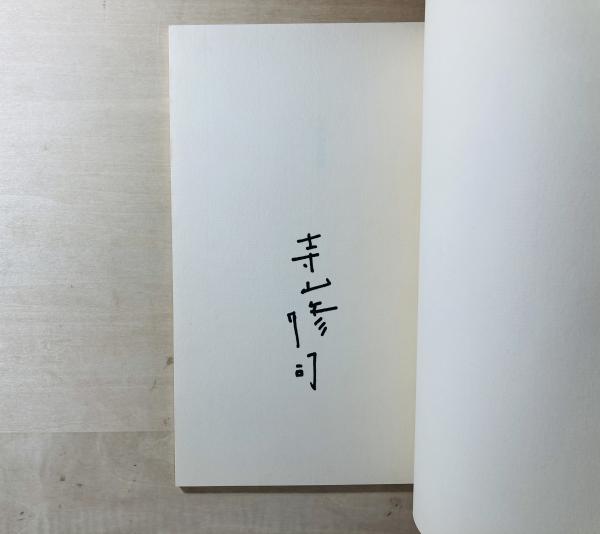 寺山修司